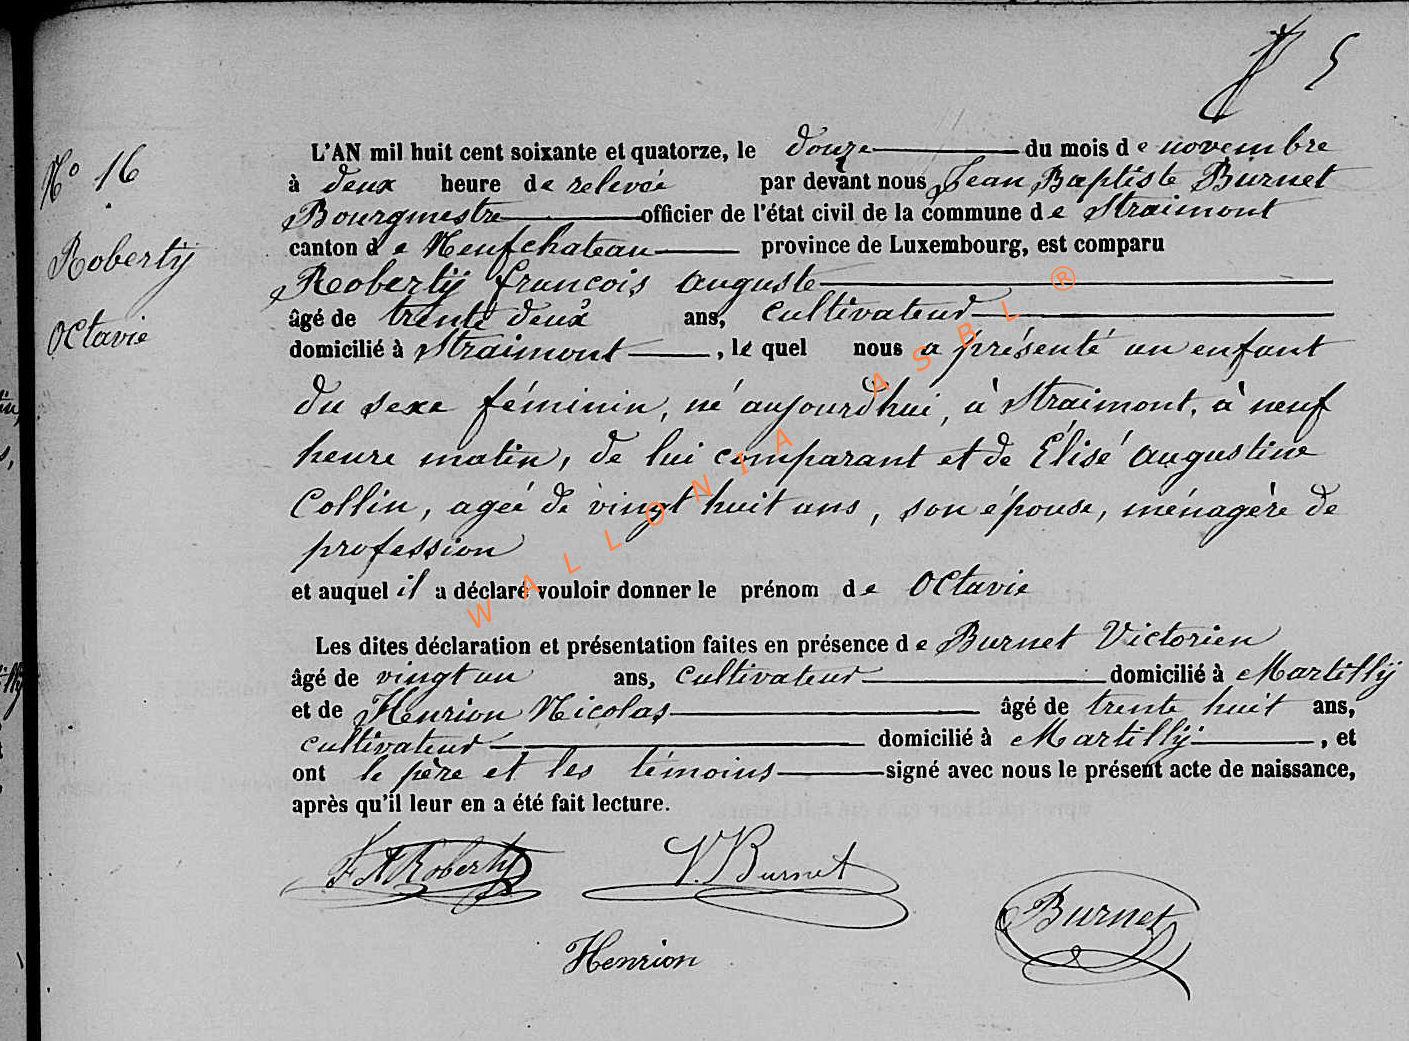 5
N° 16
Robertÿ
Octavie
L'AN mil huit cent soixante et quatorze, le douze du mois de novembre
à deux heure de relevée par devant nous Jean Baptiste Burnet
Bourgmestre officier de l'état civil de la commune de Straimont
canton de Neufchateau province de Luxembourg, est comparu
Robertÿ francois auguste
âgé de trente deux ans, cultivateur
domicilié à Straimont, le quel nous a présenté un enfant
du sexe féminin, né aujourd'hui, à Straimont, à neuf
heure matin, de lui comparant et de Élisé augustine
Collin, agée de vingt huit ans, son épouse, ménagère de
profession
et auquel il a déclaré vouloir donner le prénom de Octavie
Les dites déclaration et présentation faites en présence de Burnet Victorien
âgé de vingt un ans, cultivateur domicilié à Martillÿ
et de Henrion Nicolas âgé de trente huit ans,
cultivateur domicilié à Martillÿ, et
ont le père et les témoins signé avec nous le présent acte de naissance,
après qu'il leur en a été fait lecture.
F A Roberty
V. Burnet
Burnet
Henrion
WALLONIA ASBL ®